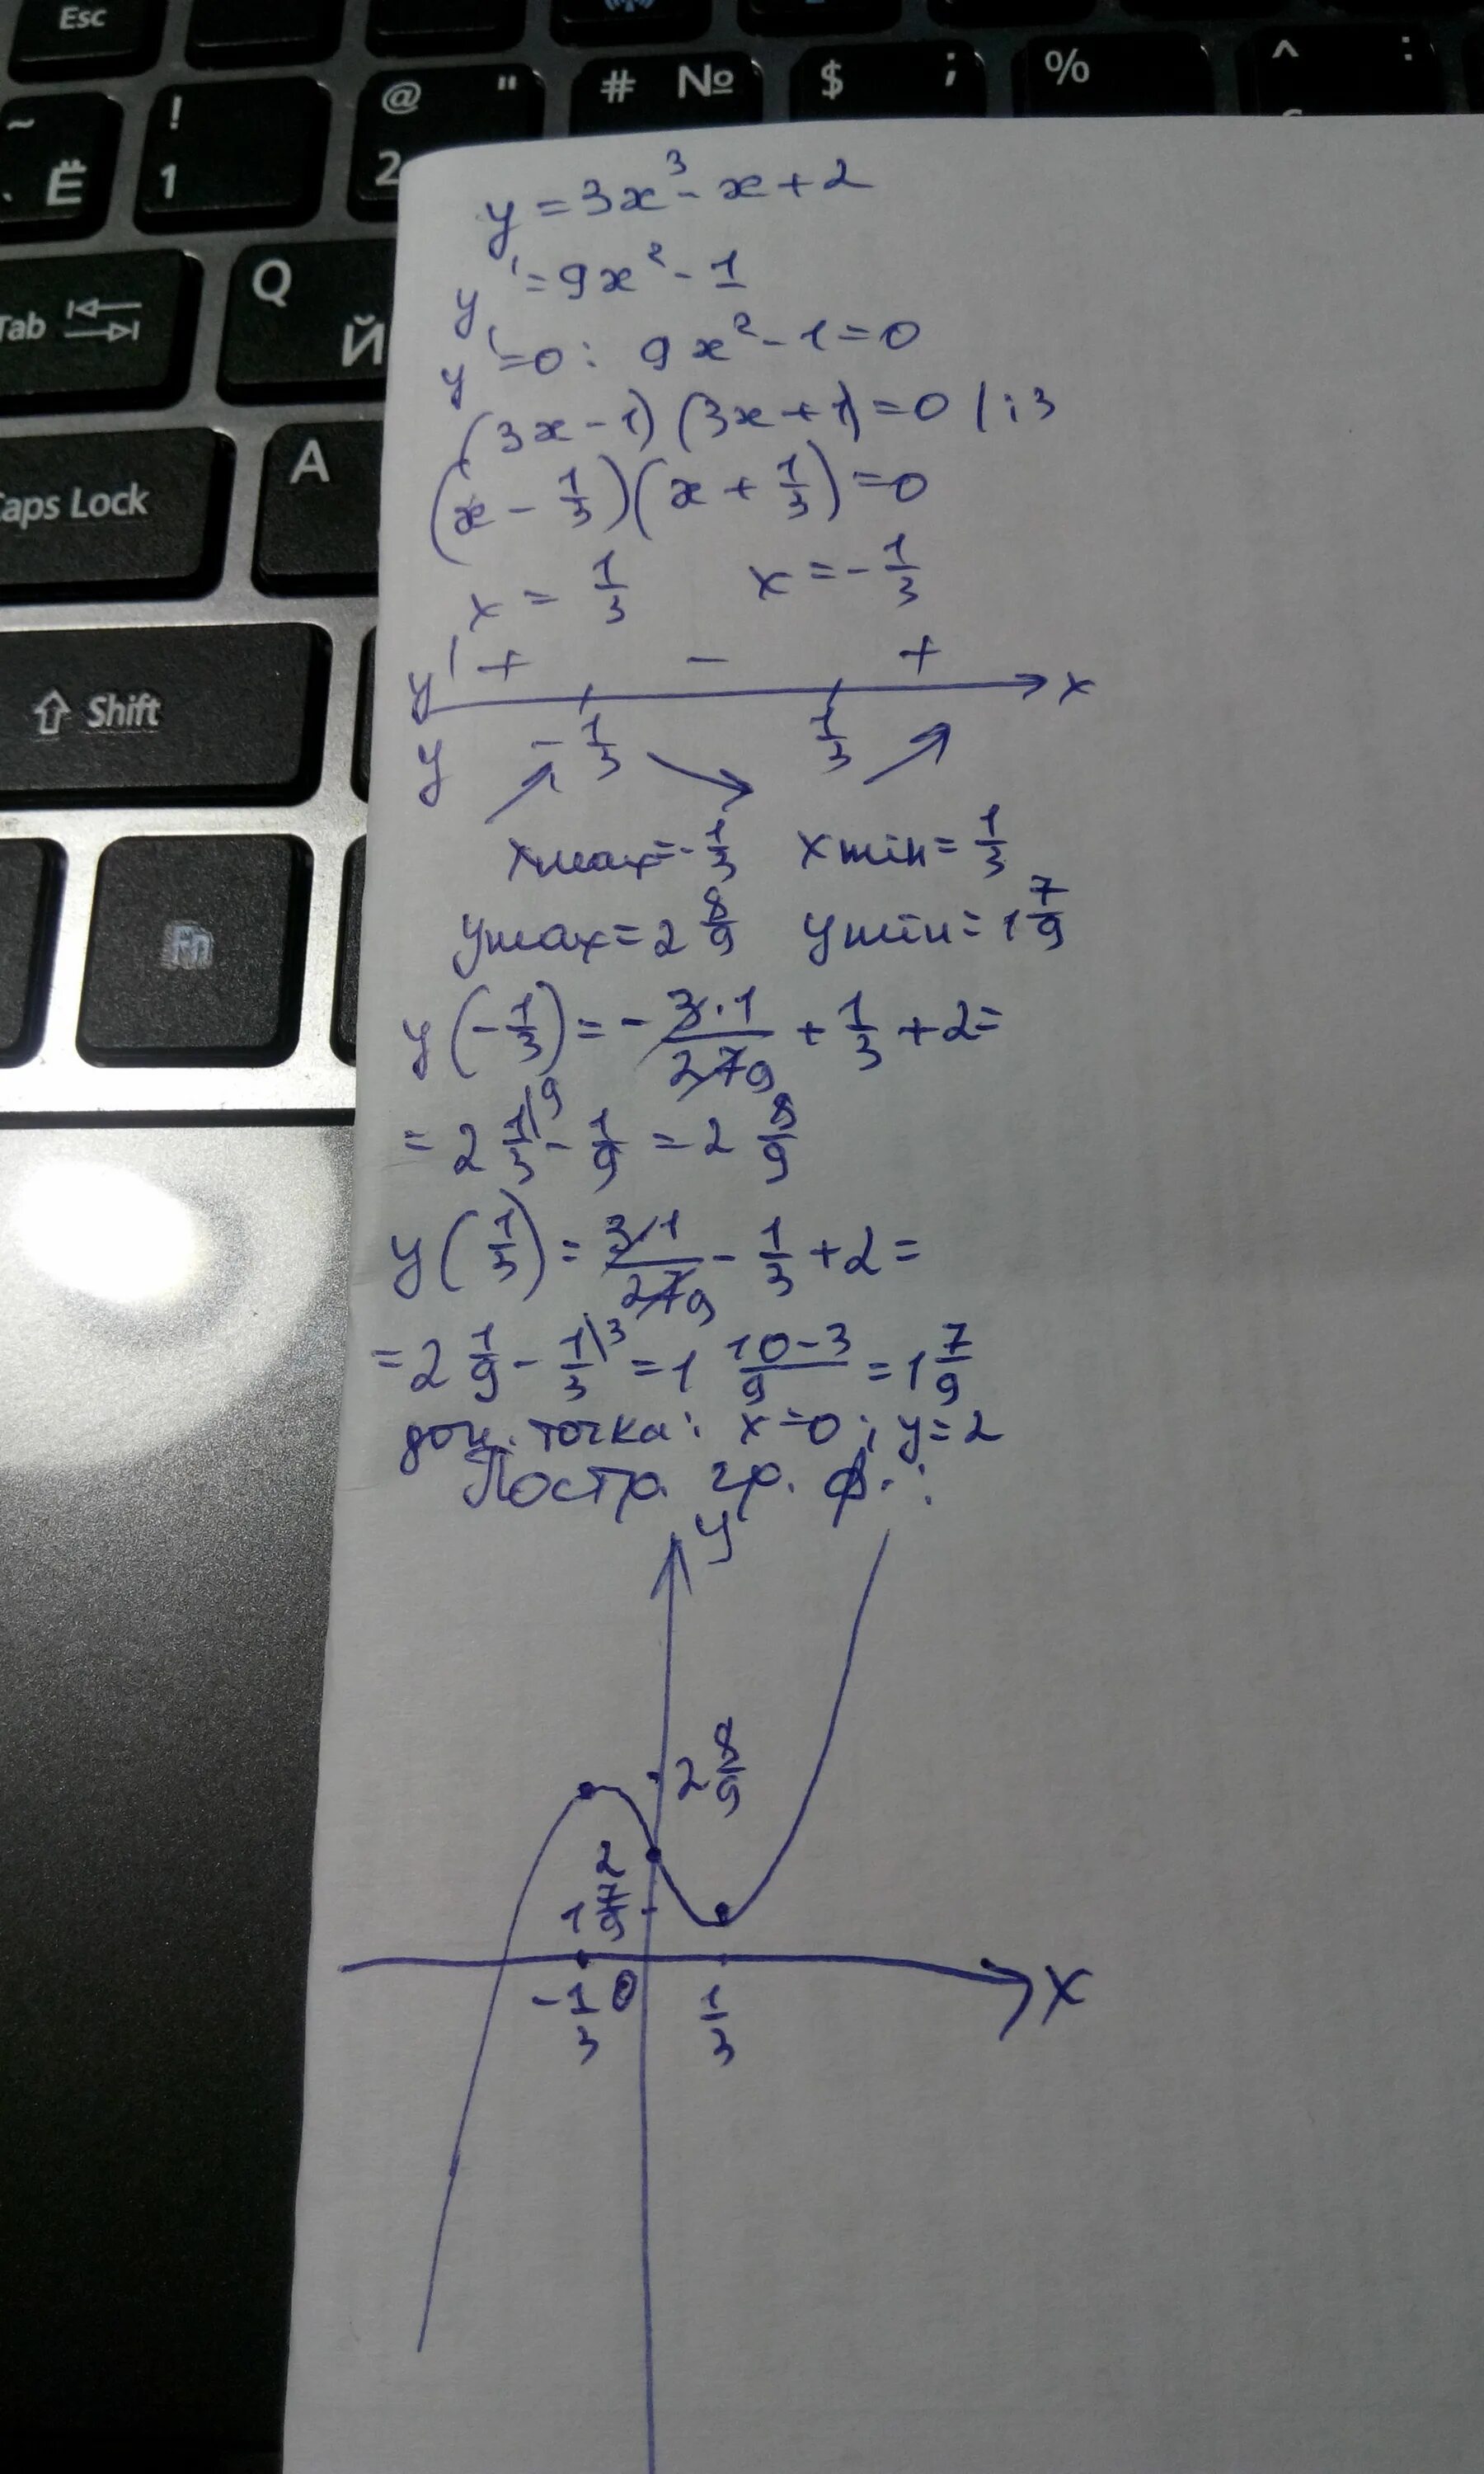 Esc
~ Ё
! 1
@ " 2
# №
$ ;
%
^ :
Tab
Q Й
Caps Lock
A
Shift
y = 3x³ - x + 2
y' = 9x² - 1
y' = 0 : 9x² - 1 = 0
(3x - 1) (3x + 1) = 0 | : 3
(x - 1/3)(x + 1/3) = 0
x = 1/3 x = - 1/3
y' + - + x
y - 1/3 1/3
xmax = - 1/3 xmin = 1/3
ymax = 2 8/9 ymin = 1 7/9
y(- 1/3) = - 3·1/27 9 + 1/3 + 2 =
= 2 1/3 \9 - 1/9 = 2 8/9
y(1/3) = 3·1/27 9 - 1/3 + 2 =
= 2 1/9 - 1/3 \3 = 1 10-3/9 = 1 7/9
доп. точка: x = 0; y = 2
Постр. гр. ф. :
y
2 8/9
2
1 7/9
x
- 1/3 0 1/3